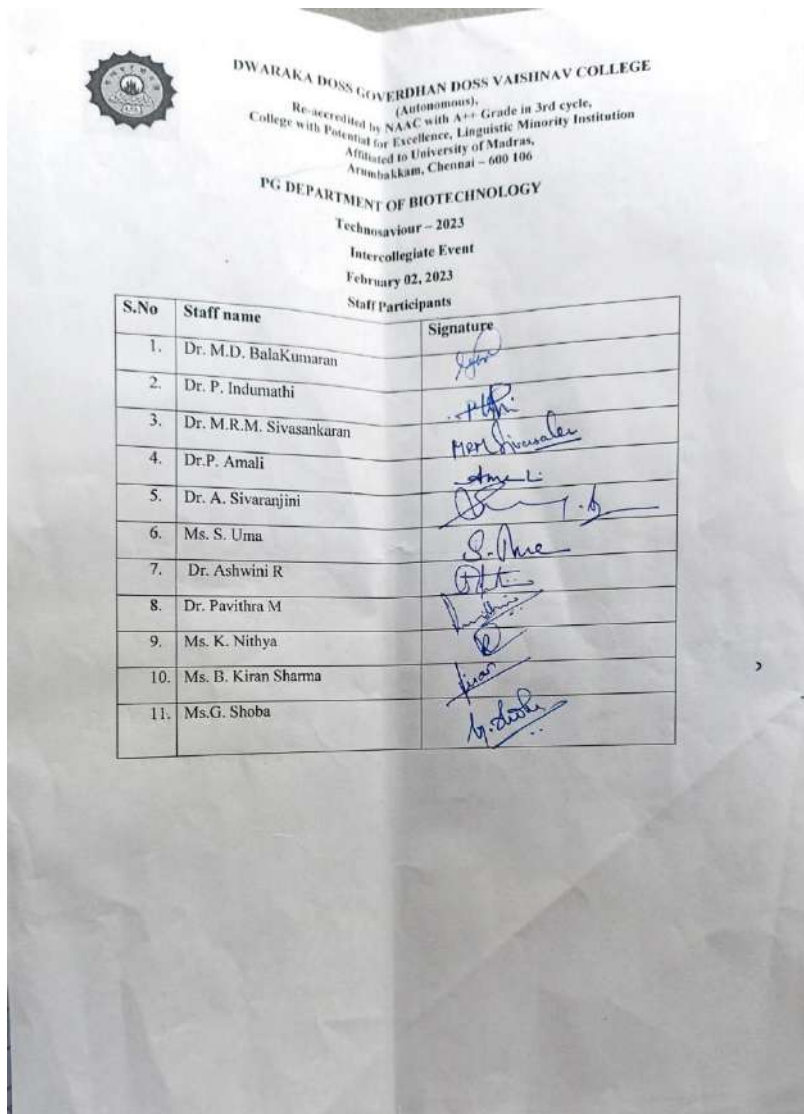 DWARAKA DOSS GOVERDHAN DOSS VAISHNAV COLLEGE
(Autonomous),
Re-accredited by NAAC with A++ Grade in 3rd cycle,
College with Potential for Excellence, Linguistic Minority Institution
Affiliated to University of Madras,
Arumbakkam, Chennai – 600 106
PG DEPARTMENT OF BIOTECHNOLOGY
Technosaviour – 2023
Intercollegiate Event
February 02, 2023
Staff Participants
S.No Staff name Signature
1. Dr. M.D. BalaKumaran
2. Dr. P. Indumathi
3. Dr. M.R.M. Sivasankaran
4. Dr.P. Amali
5. Dr. A. Sivaranjini
6. Ms. S. Uma
7. Dr. Ashwini R
8. Dr. Pavithra M
9. Ms. K. Nithya
10. Ms. B. Kiran Sharma
11. Ms.G. Shoba